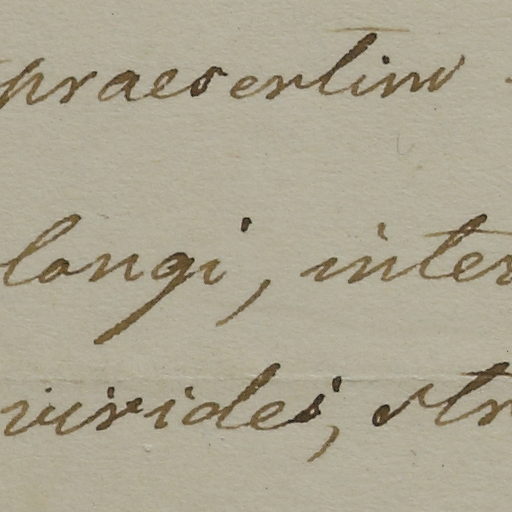 praesertim
longi, inter
virides, str